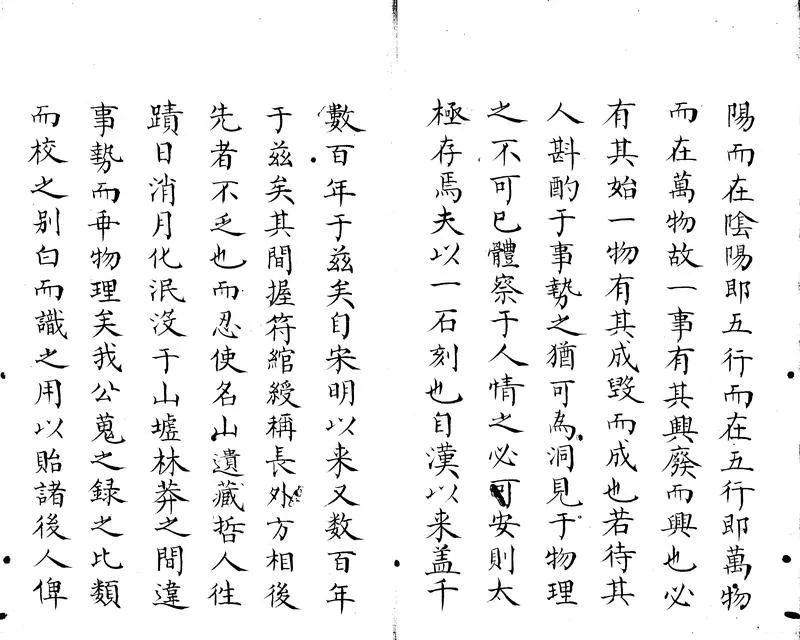 陽而在陰陽即五行而在五行即萬物
而在萬物故一事有其興廢而興也必
有其始一物有其成毀而成也若待其
人斟酌于事勢之猶可為洞見于物理
之不可已體察于人情之必可安則太
極存焉夫以一石刻也自漢以来盖千
數百年于兹矣自宋明以来又数百年
于兹矣其間握符綰綬稱長外方相後
先者不乏也而忍使名山遺藏哲人徃
蹟日消月化泯没于山墟林莽之間違
事勢而乖物理矣我公蒐之録之比類
而校之别白而識之用以貽諸後人俾